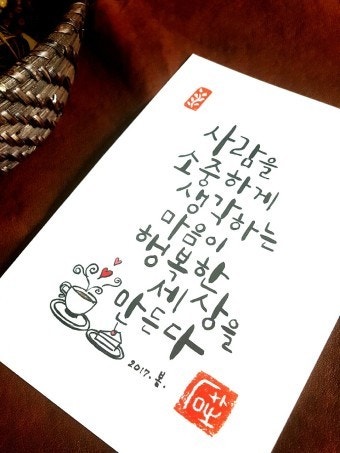 사람을
소중하게
생각하는
마음이
행복한
세상을
만든다
2017. 봄.